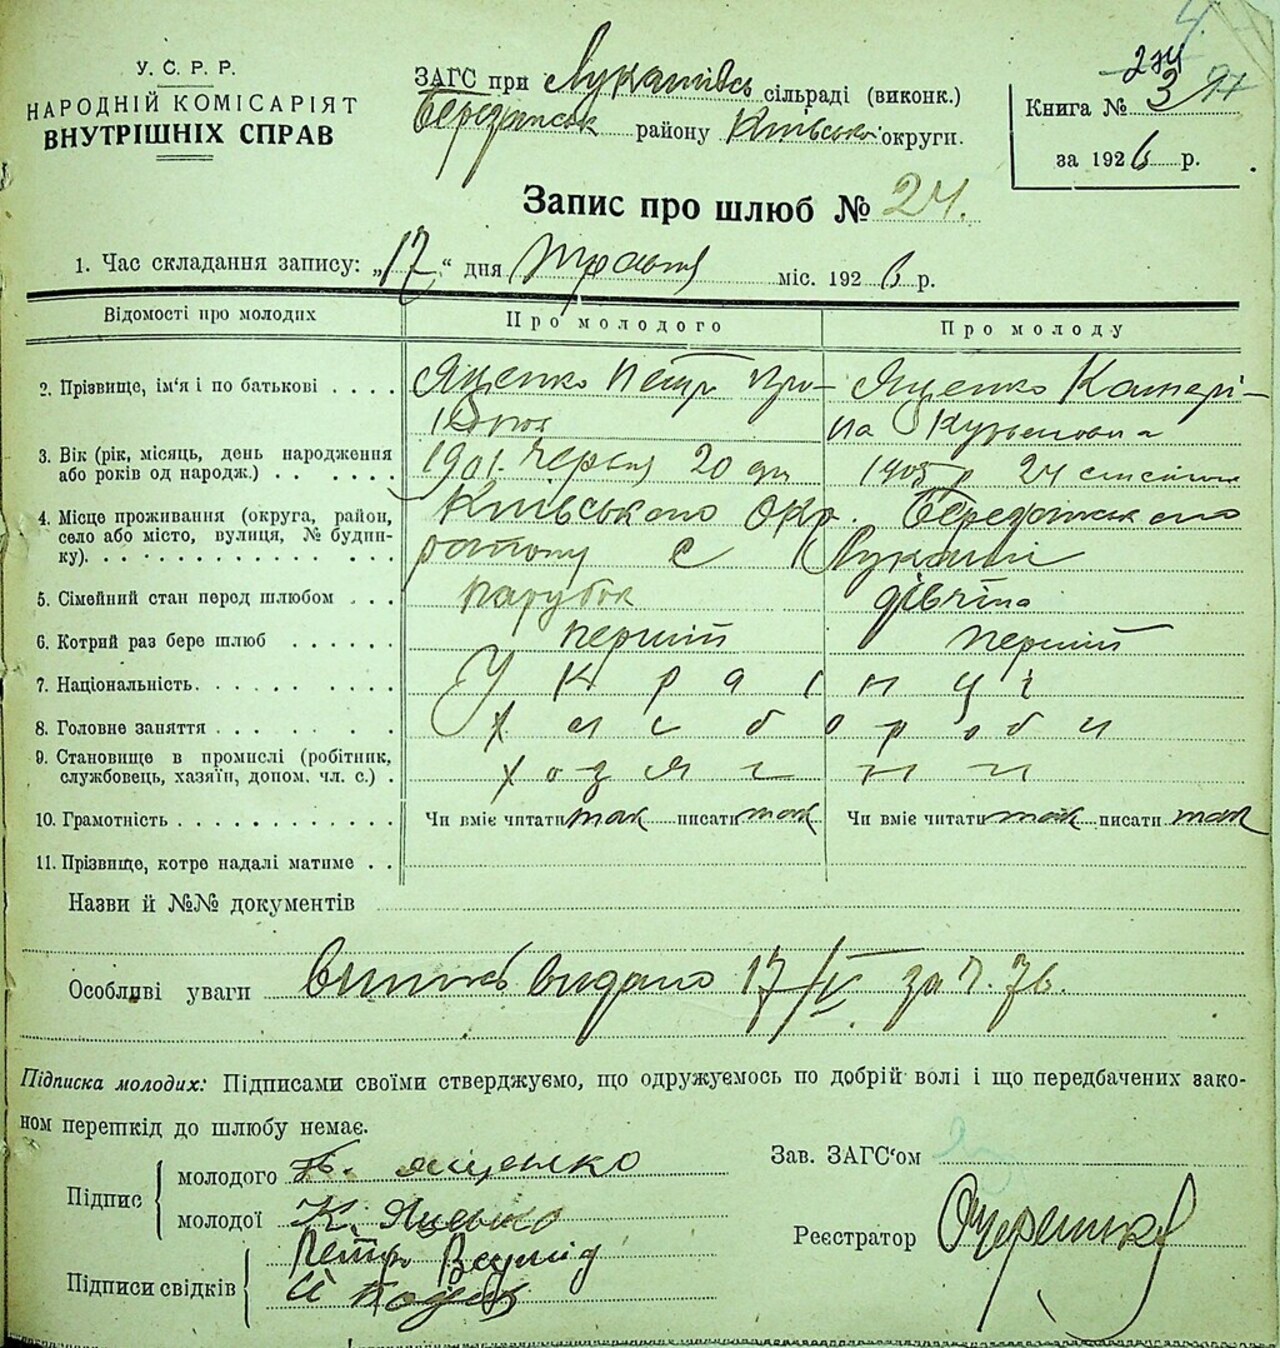 У. С. Р. Р.
НАРОДНІЙ КОМІСАРІЯТ
ВНУТРІШНІХ СПРАВ
ЗАГС при сільраді (виконк.)
району Київської округи.
274
Книга № 3
за 1926 р.
Запис про шлюб № 24.
1. Час складання запису: „17“ дня травня міс. 1926 р.
Відомості про молодих Про молодого Про молоду
2. Прізвище, ім'я і по батькові . . . . Яценко Петр Яценко Катері-
на Кузьмовна
3. Вік (рік, місяць, день народження
або років од народж.) . . . . . . 1901. Червня 20 дн 24
4. Місце проживання (округа, район,
село або місто, вулиця, № будин-
ку). . . . . . . . . . . . . . Київського Окр.
с Лукаші
5. Сімейний стан перед шлюбом . . . парубок дівчина
6. Котрий раз бере шлюб . . . . . . перший перший
7. Національність. . . . . . . . . . Українці
8. Головне заняття . . . . . . . . хлібороби
9. Становище в промислі (робітник,
службовець, хазяїн, допом. чл. с.) .
10. Грамотність . . . . . . . . . . . . Чи вміє читати так писати так Чи вміє читати так писати так
11. Прізвище, котре надалі матиме . .
Назви й №№ документів
Особливі уваги видано 17/IV за
Підписка молодих: Підписами своїми стверджуємо, що одружуємось по добрій волі і що передбачених зако-
ном перешкід до шлюбу немає.
Підпис
молодого Яценко
молодої К. Яценко
Підписи свідків Петро
Зав. ЗАГС'ом
Реєстратор